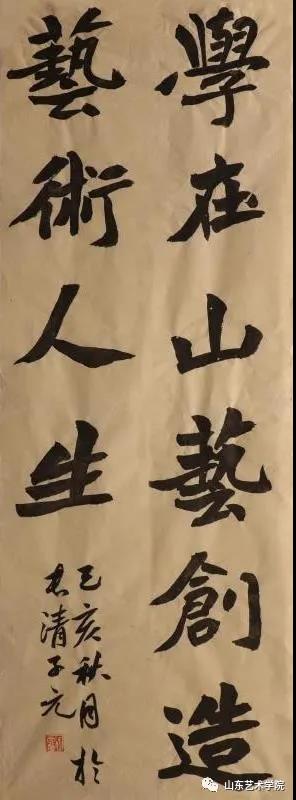 學在山藝創造
藝術人生
己亥秋月於
清子元
山东艺术学院